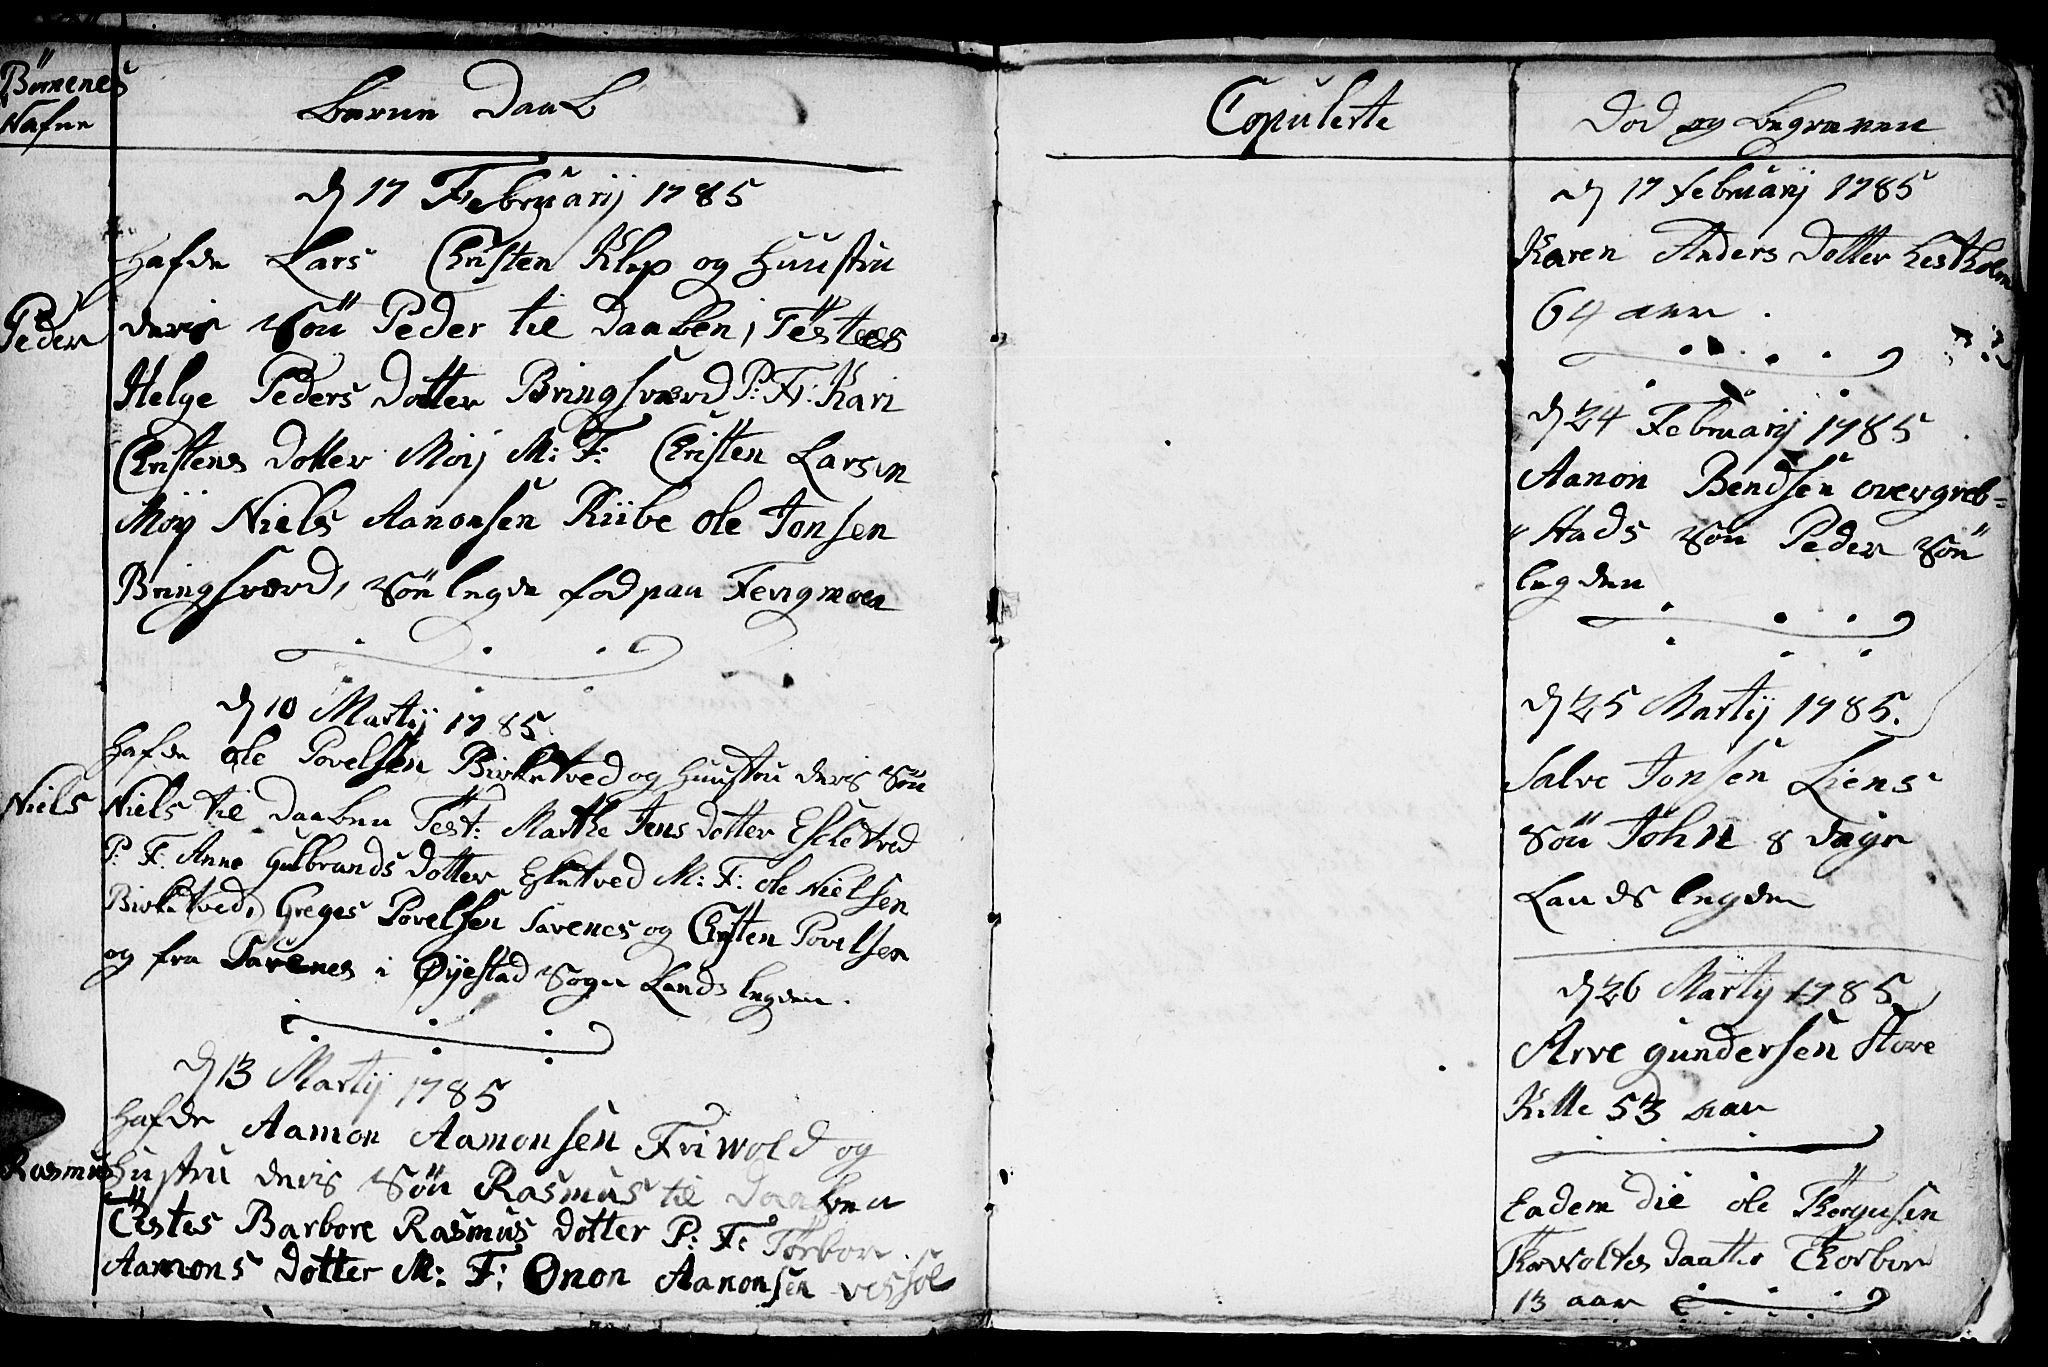 Börnenes
Nafne
Børne Daab
d 17 Februarij 1785
Hafde Lars Christen Klep og Huustru
Peder
deris Sön Peder til Daaben, Testes
Helge Peders Dotter Bringsværd P: F: Kari
Christens Dotter Moij M: F: Christen Larsen
Moij Niels Aanonsen Riibe Ole Jonsen
Bringsværd, Sön legde fod paa Fevigmoen
d 10 Martij 1785.
Hafde Ole Povelsen Birketved og Huustru deris Sön
Niels
Niels til Daaben Test: Marthe Jens Dotter Esketved
P: F: Anne Gulbrands Dotter Esketved M: F: Ole Nielsen
Birketved, Greges Povelsen Savenes og Christen Povelsen
og fra Savenes i Øyestad Sogn Lands legden.
d 13 Martij 1785
Hafde Aamon Aamonsen Friwold og
Rasmus
Hustru deris Sön Rasmus til Daaben
Testes Barbore Rasmus Dotter P: F: Torbor
Aamons Dotter M: F: Onon Aanonsen vessøe
Copulerte
Død og begravne
d 17 Februarij 1785
Karen Anders Dotter Hestholm
64 aar.
d 24 Februarij 1785
Aanon Bendsen overgreb=
stads Sön Peder Sön
legden
d 25 Martij 1785.
Salve Jonsen Liens
Sön John 8 Dage
Lands legden
d 26 Martij 1785
Arve Gundersen Store
Kille 53 aar
Eadem die Ole Thorgusen
Thorvoltes Daatter Thorbor
13 aar